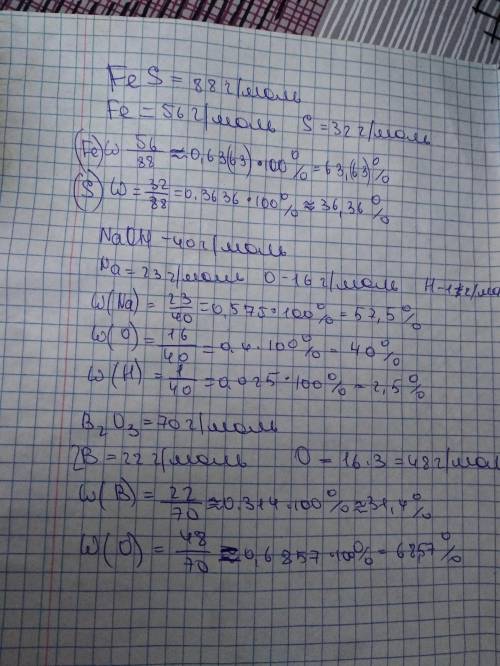 FeS = 88 г/моль
Fe = 56 г/моль S = 32 г/моль
(Fe) ω 56/88 ≈ 0,63(63)·100% = 63,(63)%
(S) ω = 32/88 = 0.3636·100% ≈ 36,36%
NaOH - 40 г/моль
Na = 23 г/моль O - 16 г/моль H - 1 г/мо
ω(Na) = 23/40 = 0,575·100% = 57,5%
ω(O) = 16/40 = 0.4·100% = 40%
ω(H) = 1/40 = 0,025·100% = 2,5%
B₂O₃ = 70 г/моль
2B = 22 г/моль O = 16·3 = 48 г/мол
ω(B) = 22/70 ≈ 0.314·100% ≈ 31,4%
ω(O) = 48/70 ≈ 0,6857·100% = 68,57%